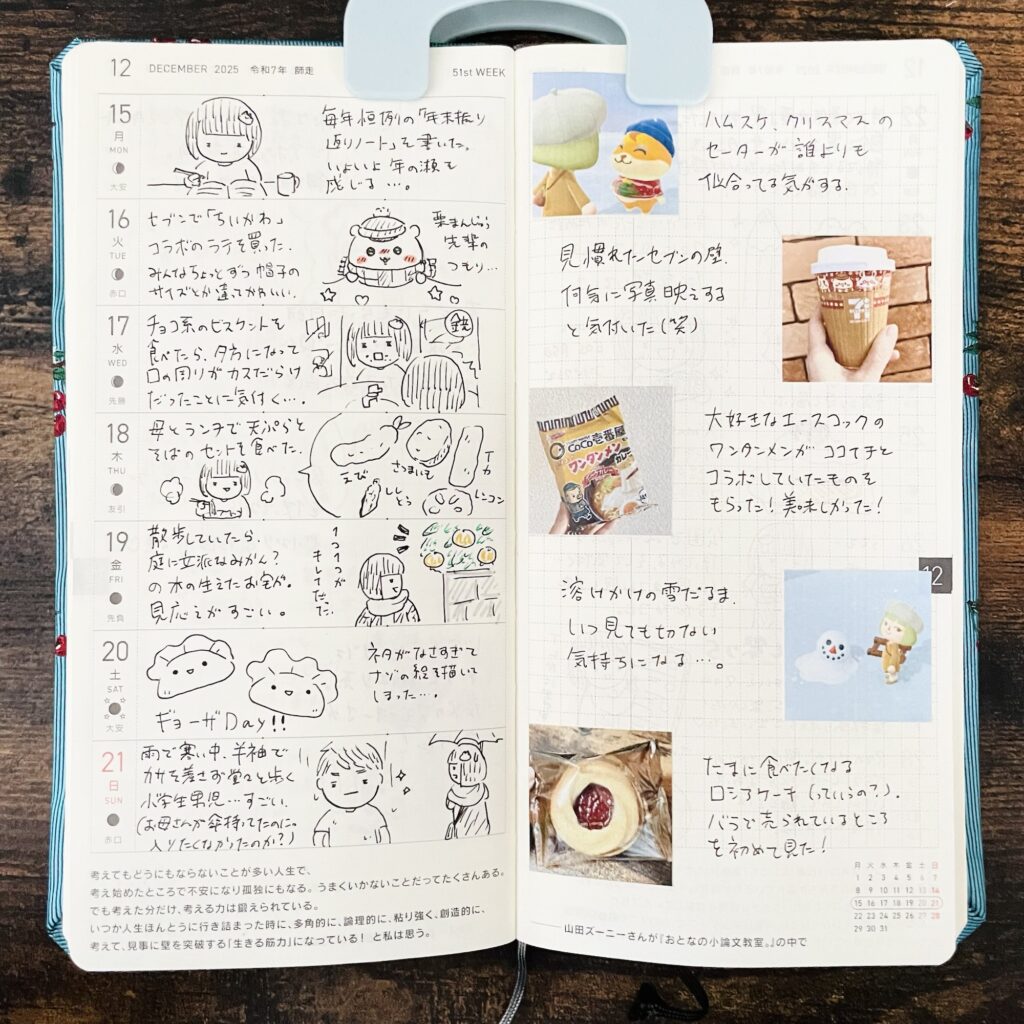 12 DECEMBER 2025 令和7年 師走 51st WEEK
15
月
MON
大安
毎年恒例の「年末振り
返りノート」を書いた。
いよいよ年の瀬を
感じる…。
16
火
TUE
赤口
セブンで「ちいかわ」
コラボのラテを買った。
みんなちょっとずつ帽子の
サイズとか違ってかわいい。
栗まんじゅう
先輩の
つもり…
17
水
WED
先勝
チョコ系のビスケットを
食べたら、夕方になって
口の周りがカスだらけ
だったことに気付く…。
鏡
18
木
THU
友引
母とランチで天ぷらと
そばのセットを食べた。
えび
さつまいも
イカ
しし
とう
レンコン
19
金
FRI
先負
散歩していたら、
庭に立派なみかん?
の木の生えたお宅が。
見応えがすごい。
1つ1つが
キレイだった。
20
土
SAT
大安
ギョーザDay!!
ネタがなさすぎて
ナゾの絵を描いて
しまった…。
21
日
SUN
赤口
雨で寒い中、半袖で
カサを差さず堂々と歩く
小学生男児…すごい。
(お母さんが傘持ってたのに。
入りたくなかったのか?)
考えてもどうにもならないことが多い人生で、
考え始めたところで不安になり孤独にもなる。うまくいかないことだってたくさんある。
でも考えた分だけ、考える力は鍛えられている。
いつか人生ほんとうに行き詰まった時に、多角的に、論理的に、粘り強く、創造的に、
考えて、見事に壁を突破する「生きる筋力」になっている! と私は思う。
ハムスケ、クリスマスの
セーターが誰よりも
似合ってる気がする。
見慣れたセブンの壁。
何気に写真映えする
と気付いた(笑)
大好きなエースコックの
ワンタンメンがココイチと
コラボしていたものを
もらった!美味しかった!
CoCo壱番屋
ワンタンメン
カレー
12
溶けかけの雪だるま。
いつ見ても切ない
気持ちになる…。
たまに食べたくなる
ロシアケーキ(っていうの?)。
バラで売られているところ
を初めて見た!
月 火 水 木 金 土 日
1 2 3 4 5 6 7
8 9 10 11 12 13 14
15 16 17 18 19 20 21
22 23 24 25 26 27 28
29 30 31
山田ズーニーさんが『おとなの小論文教室。』の中で